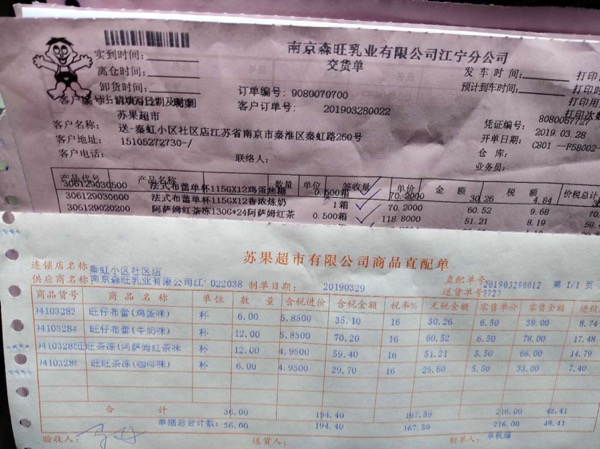 南京森旺乳业有限公司江宁分公司
交货单
实到时间:
离仓时间:
卸货时间:
发车时间:
预计到车时间:
订单编号: 9080070700
客户订单号: 201903280022
苏果超市
客户名称: 送-秦虹小区社区店江苏省南京市秦淮区秦虹路260号
客户地址: 15105272730-/
客户电话:
联络人:
凭证编号: 8080087727
开单日期: 2019.03.28
仓库: C801 --F58002-
业务员:
产品名称 数量 单位 签收量 单价 金额 税额 价税总计
306129030500 法式布蕾单杯115GX12鸡蛋 0.500箱 70.2000 30.26 4.84
306129030600 法式布蕾单杯115G12香浓炼奶 1箱 70.2000 60.52 9.68
306129020200 阿萨姆红茶冻130G*24阿萨姆红茶 0.500箱 118.8000 51.21 8.19
苏果超市有限公司商品直配单
连锁店名称 秦虹小区社区店
直配单号 201903290012 第 1/1 页
供应商名称 南京森旺乳业有限公司江 022038 制单日期: 20190329 送货单号 8727
商品货号 商品名称 单位 数量 含税进价 含税金额 税率% 无税金额 零售单价 零售金额 进销
H4103282 旺仔布蕾(鸡蛋味) 杯 6.00 5.8500 35.10 16 30.26 6.50 39.00 8.74
H4103284 旺仔布蕾(牛奶味) 杯 12.00 5.8500 70.20 16 60.52 6.50 78.00 17.48
旺旺茶冻(阿萨姆红茶味 杯 12.00 4.9500 59.40 16 51.21 5.50 66.00 14.79
旺旺茶冻(咖啡味) 杯 6.00 4.9500 29.70 16 25.60 5.50 33.00 7.40
合计 36.00 194.40 167.59 216.00 48.41
单据总合计数: 36.00 194.40 167.59 216.00 48.41
验收人: 送货人: 制单人: